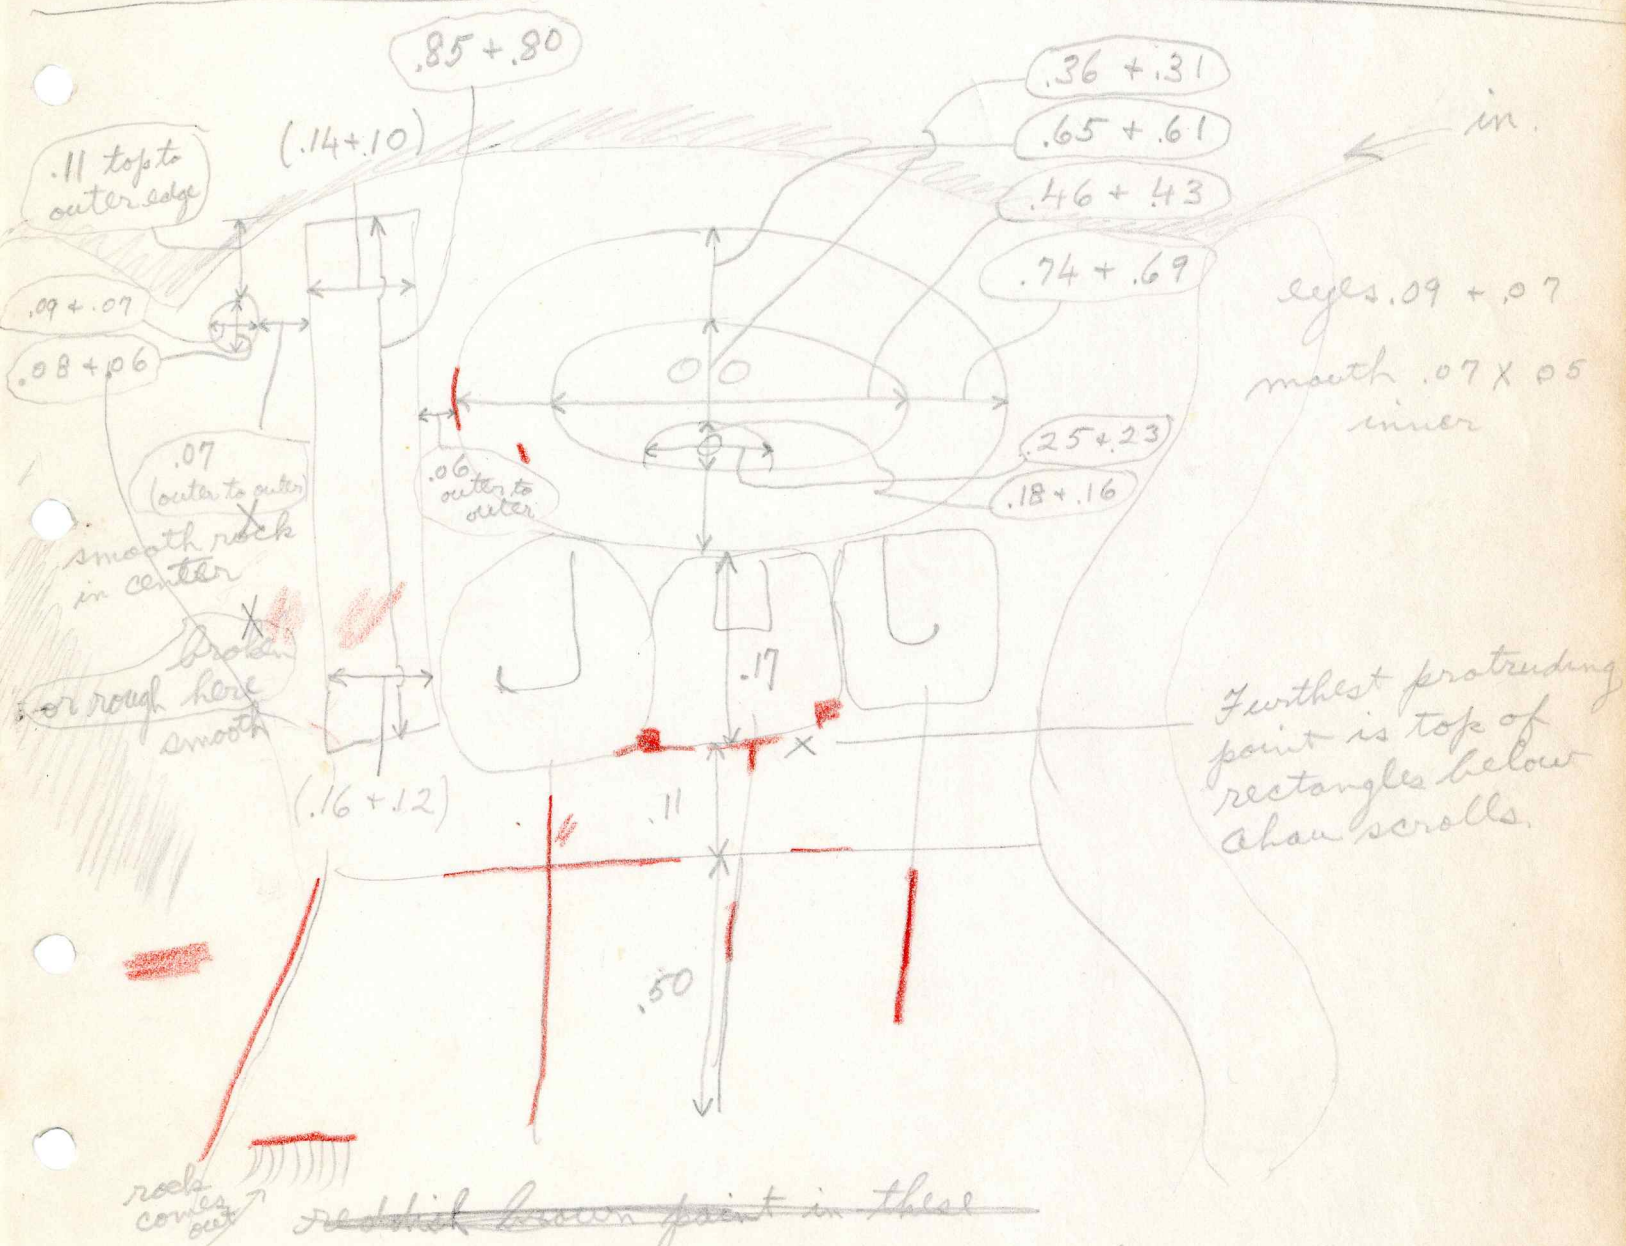 .85 + .80
.36 + .31
.65 + .61
.46 + .43
.74 + .69
in.
(.14 + .10)
.11 top to
outer edge
.09 + .07
.08 + .06
eyes .09 + .07
mouth .07 X 05
inner
.25 + .23
.18 + .16
.07
(outer to outer)
.06
outer to
outer
X
smooth rock
in center
X
broken
or rough here
smooth
.17
X
(.16 + .12)
.11
Furthest protruding
point is top of
rectangles below
Ahau scrolls.
.50
rock
comes
out
reddish brown paint in these